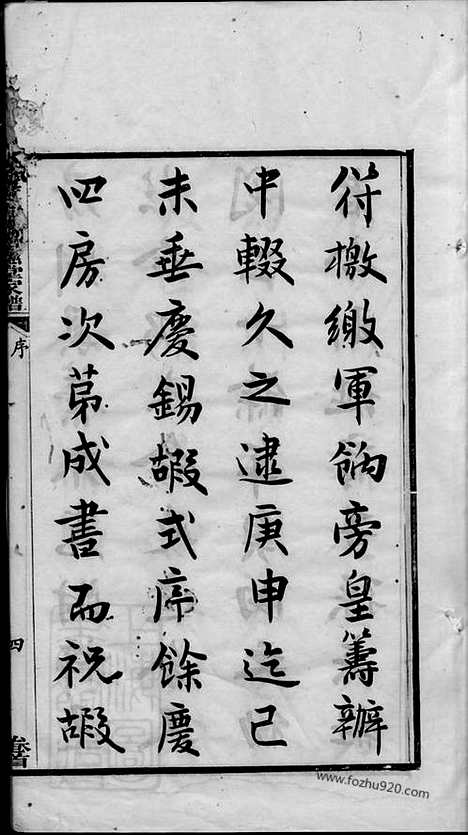 符檄繳軍餉旁皇籌辦
中輟久之逮庚申迄己
未垂慶錫嘏式序餘慶
四房次苐成書而祝嘏
序
四
www.fozhu920.com